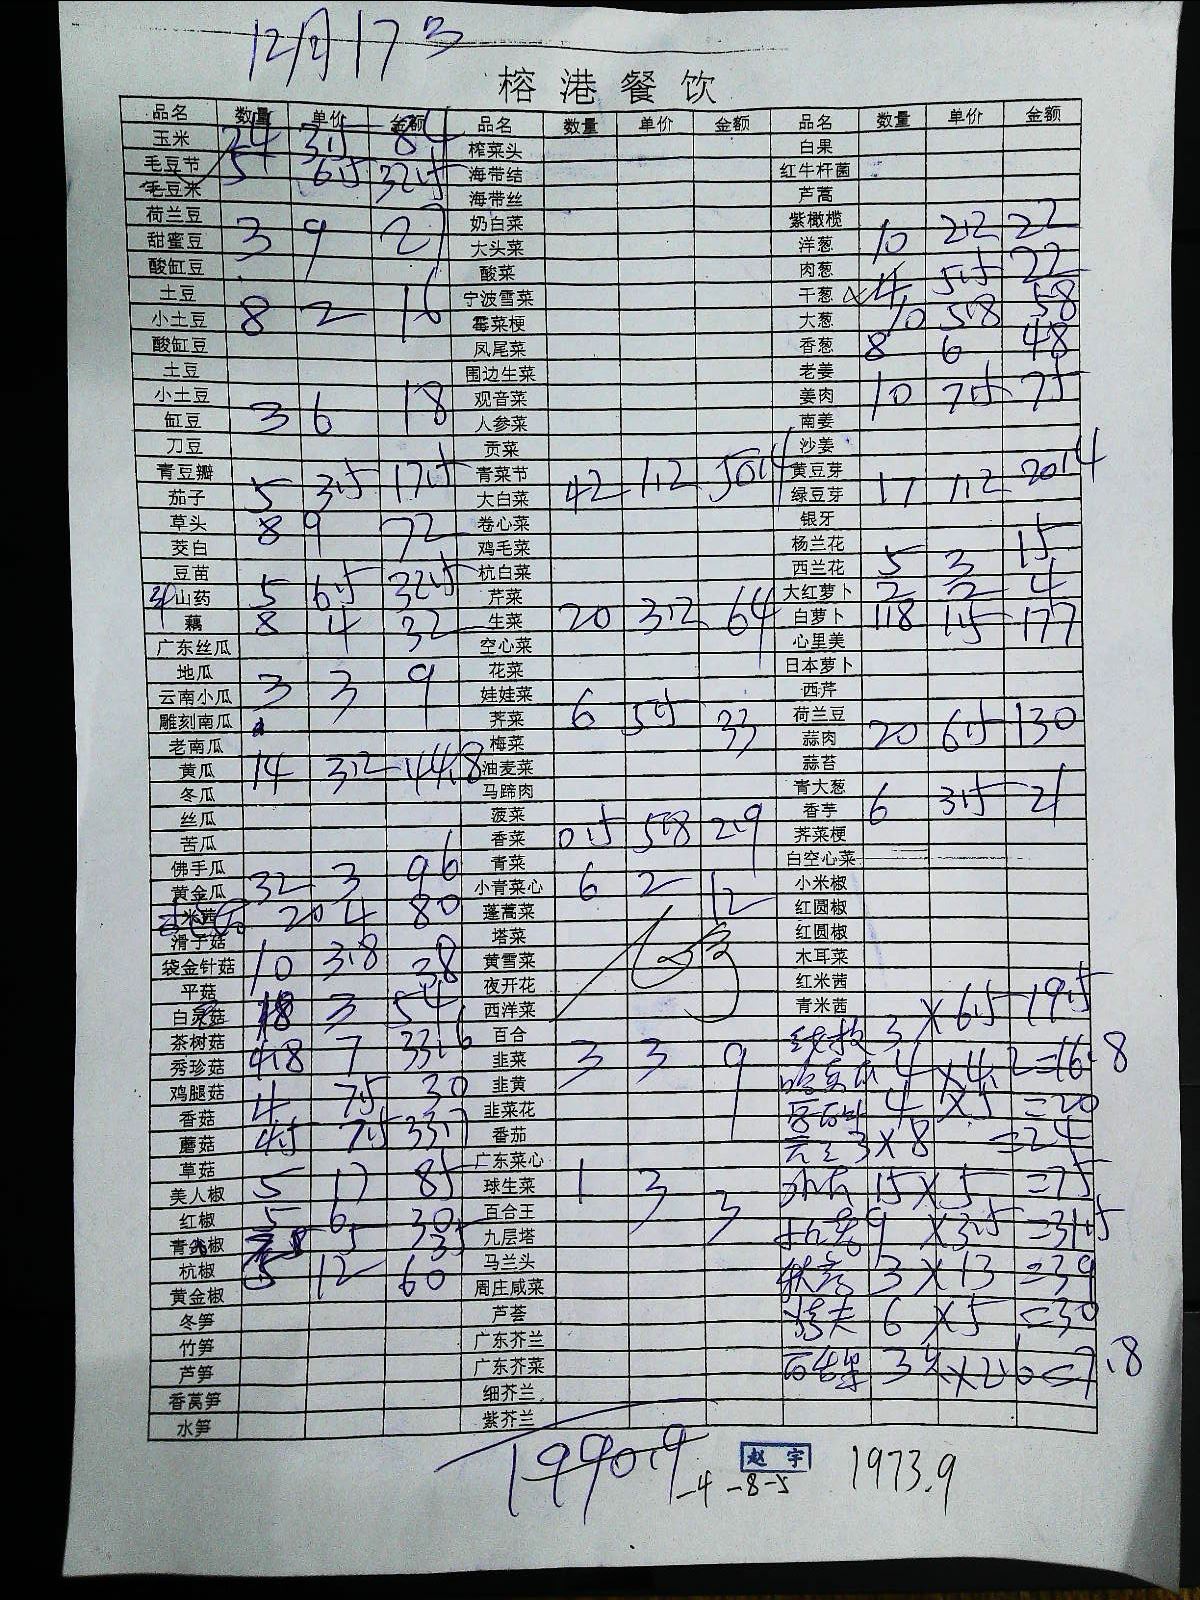 12月17日
榕港餐饮
品名 数量 单价 金额 品名 数量 单价 金额 品名 数量 单价 金额
玉米 24 3.5 84 榨菜头 白果
毛豆节 5 6.5 32.5 海带结 红牛杆菌
毛豆米 海带丝 芦蒿
荷兰豆 奶白菜 紫橄榄
甜蜜豆 3 9 27 大头菜 洋葱 10 2.2 22
酸缸豆 酸菜 肉葱
土豆 宁波雪菜 干葱 4 5.5 22
小土豆 8 2 16 霉菜梗 大葱 10 5.8 58
酸缸豆 凤尾菜 香葱 8 6 48
土豆 围边生菜 老姜
小土豆 观音菜 姜肉 10 7.5 75
缸豆 3 6 18 人参菜 南姜
刀豆 贡菜 沙姜
青豆瓣 青菜节 黄豆芽
茄子 5 3.5 17.5 大白菜 42 1.2 50.4 绿豆芽 17 1.2 20.4
草头 8 9 72 卷心菜 银牙
茭白 鸡毛菜 杨兰花
豆苗 杭白菜 西兰花 5 3 15
山药 5 6.5 32.5 芹菜 大红萝卜 2 2 4
藕 8 4 32 生菜 20 3.2 64 白萝卜 118 1.5 177
广东丝瓜 空心菜 心里美
地瓜 花菜 日本萝卜
云南小瓜 3 3 9 娃娃菜 西芹
雕刻南瓜 荠菜 6 5.5 33 荷兰豆
老南瓜 梅菜 蒜肉 20 6.5 130
黄瓜 14 3.2 44.8 油麦菜 蒜苔
冬瓜 马蹄肉 青大葱
丝瓜 菠菜 香芋 6 3.5 21
苦瓜 香菜 0.5 5.8 2.9 荠菜梗
佛手瓜 青菜 白空心菜
黄金瓜 32 3 96 小青菜心 6 2 12 小米椒
米茜 20 4 80 蓬蒿菜 红圆椒
滑子菇 塔菜 红圆椒
袋金针菇 10 3.8 38 黄雪菜 木耳菜
平菇 夜开花 红米茜
白灵菇 18 3 54 西洋菜 青米茜
茶树菇 百合 3×6.5 19.5
秀珍菇 4.8 7 33.6 韭菜 3 3 9 4×4.2=16.8
鸡腿菇 韭黄 4×5=20
香菇 4 7.5 30 韭菜花 3×8=24
蘑菇 4.5 7.5 33.7 番茄
草菇 广东菜心
美人椒 5 17 85 球生菜 1 3 3 15×5=75
红椒 5 6 30 百合王
青尖椒 5 35 九层塔 9×3.5=31.5
杭椒 5 12 60 马兰头 3×13=39
黄金椒 周庄咸菜
冬笋 芦荟 6×5=30
竹笋 广东芥兰
芦笋 广东芥菜 3×2.6=7.8
香莴笋 细芥兰
水笋 紫芥兰
1990.9 -4-8-5 赵宇 1973.9